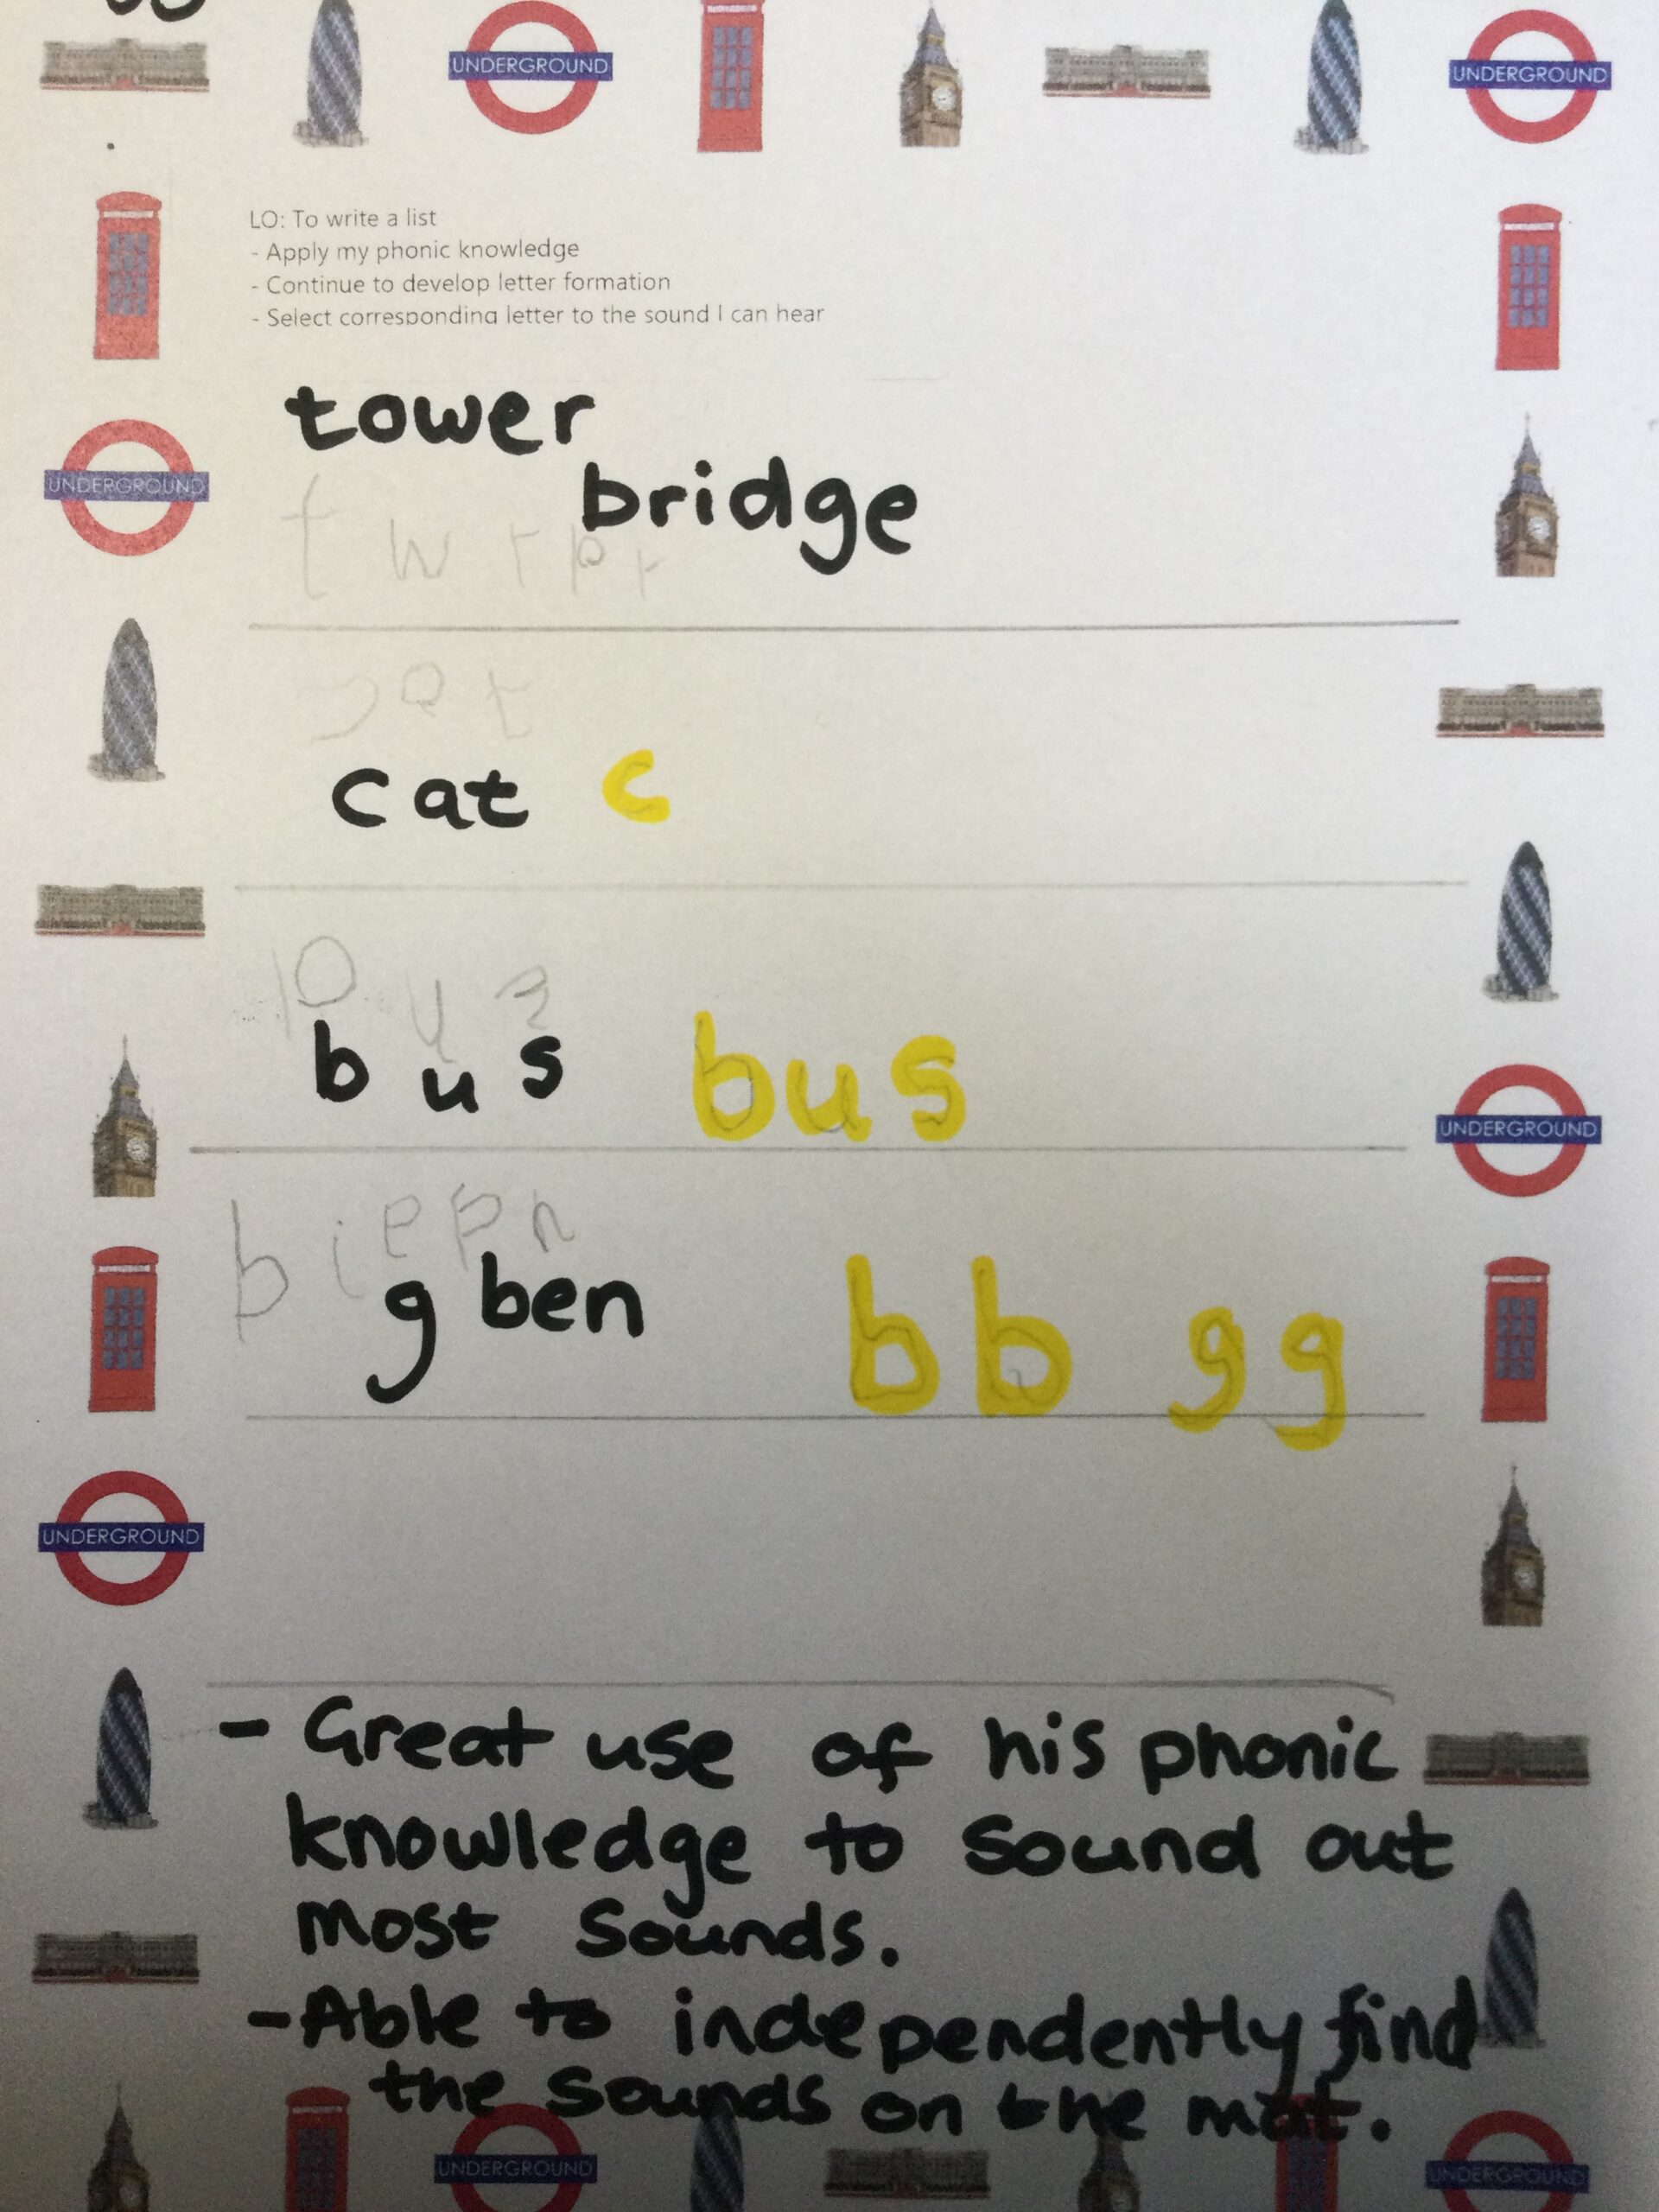 UNDERGROUND UNDERGROUND
LO: To write a list
- Apply my phonic knowledge
- Continue to develop letter formation
- Select corresponding letter to the sound I can hear
tower
bridge
UNDERGROUND
t w r p r
c a t
cat c
b u s
b u s bus
UNDERGROUND
b i e p n
g ben b b g g
UNDERGROUND
- Great use of his phonic
knowledge to sound out
most sounds.
- Able to independently find
the sounds on the mat.
UNDERGROUND UNDERGROUND